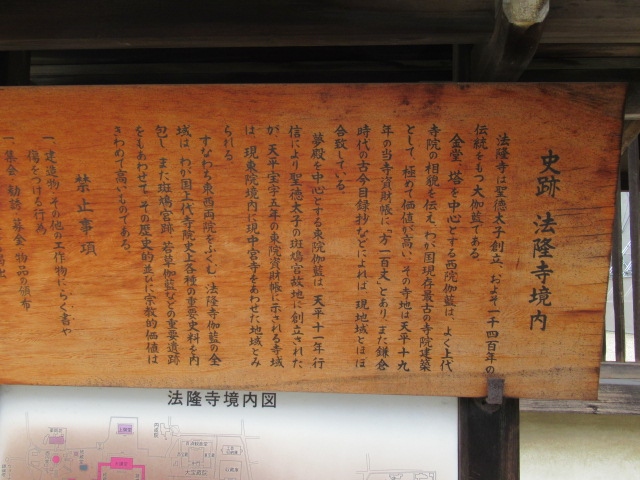 史跡 法隆寺境内
法隆寺は聖徳太子創立、およそ一千四百年の
伝統をもつ大伽藍である。
金堂、塔を中心とする西院伽藍は、よく上代
寺院の相貌を伝え、わが国現存最古の寺院建築
として、極めて価値が高い、その寺地は天平十九
年の当寺資財帳に「方一百丈」とあり、また鎌倉
時代の古今目録抄などによれば、現地域とほぼ
合致している。
夢殿を中心とする東院伽藍は、天平十一年行
信により聖徳太子の斑鳩宮故地に創立された
が、天平宝字五年の東院資財帳に示される寺域
は、現東院境内に現中宮寺をあわせた地域とみ
られる。
すなわち東西両院をふくむ、法隆寺伽藍の全
域は、わが国上代寺院史上各種の重要史料を内
包し、また斑鳩宮跡、若草伽藍などの重要遺跡
をもあわせて、その歴史的並ひに宗教的価値は
きわめて高いものである。
禁止事項
一 建造物、その他の工作物にらく書や
傷をつける行為
一 集会、勧誘、募金、物品の頒布
法隆寺境内図